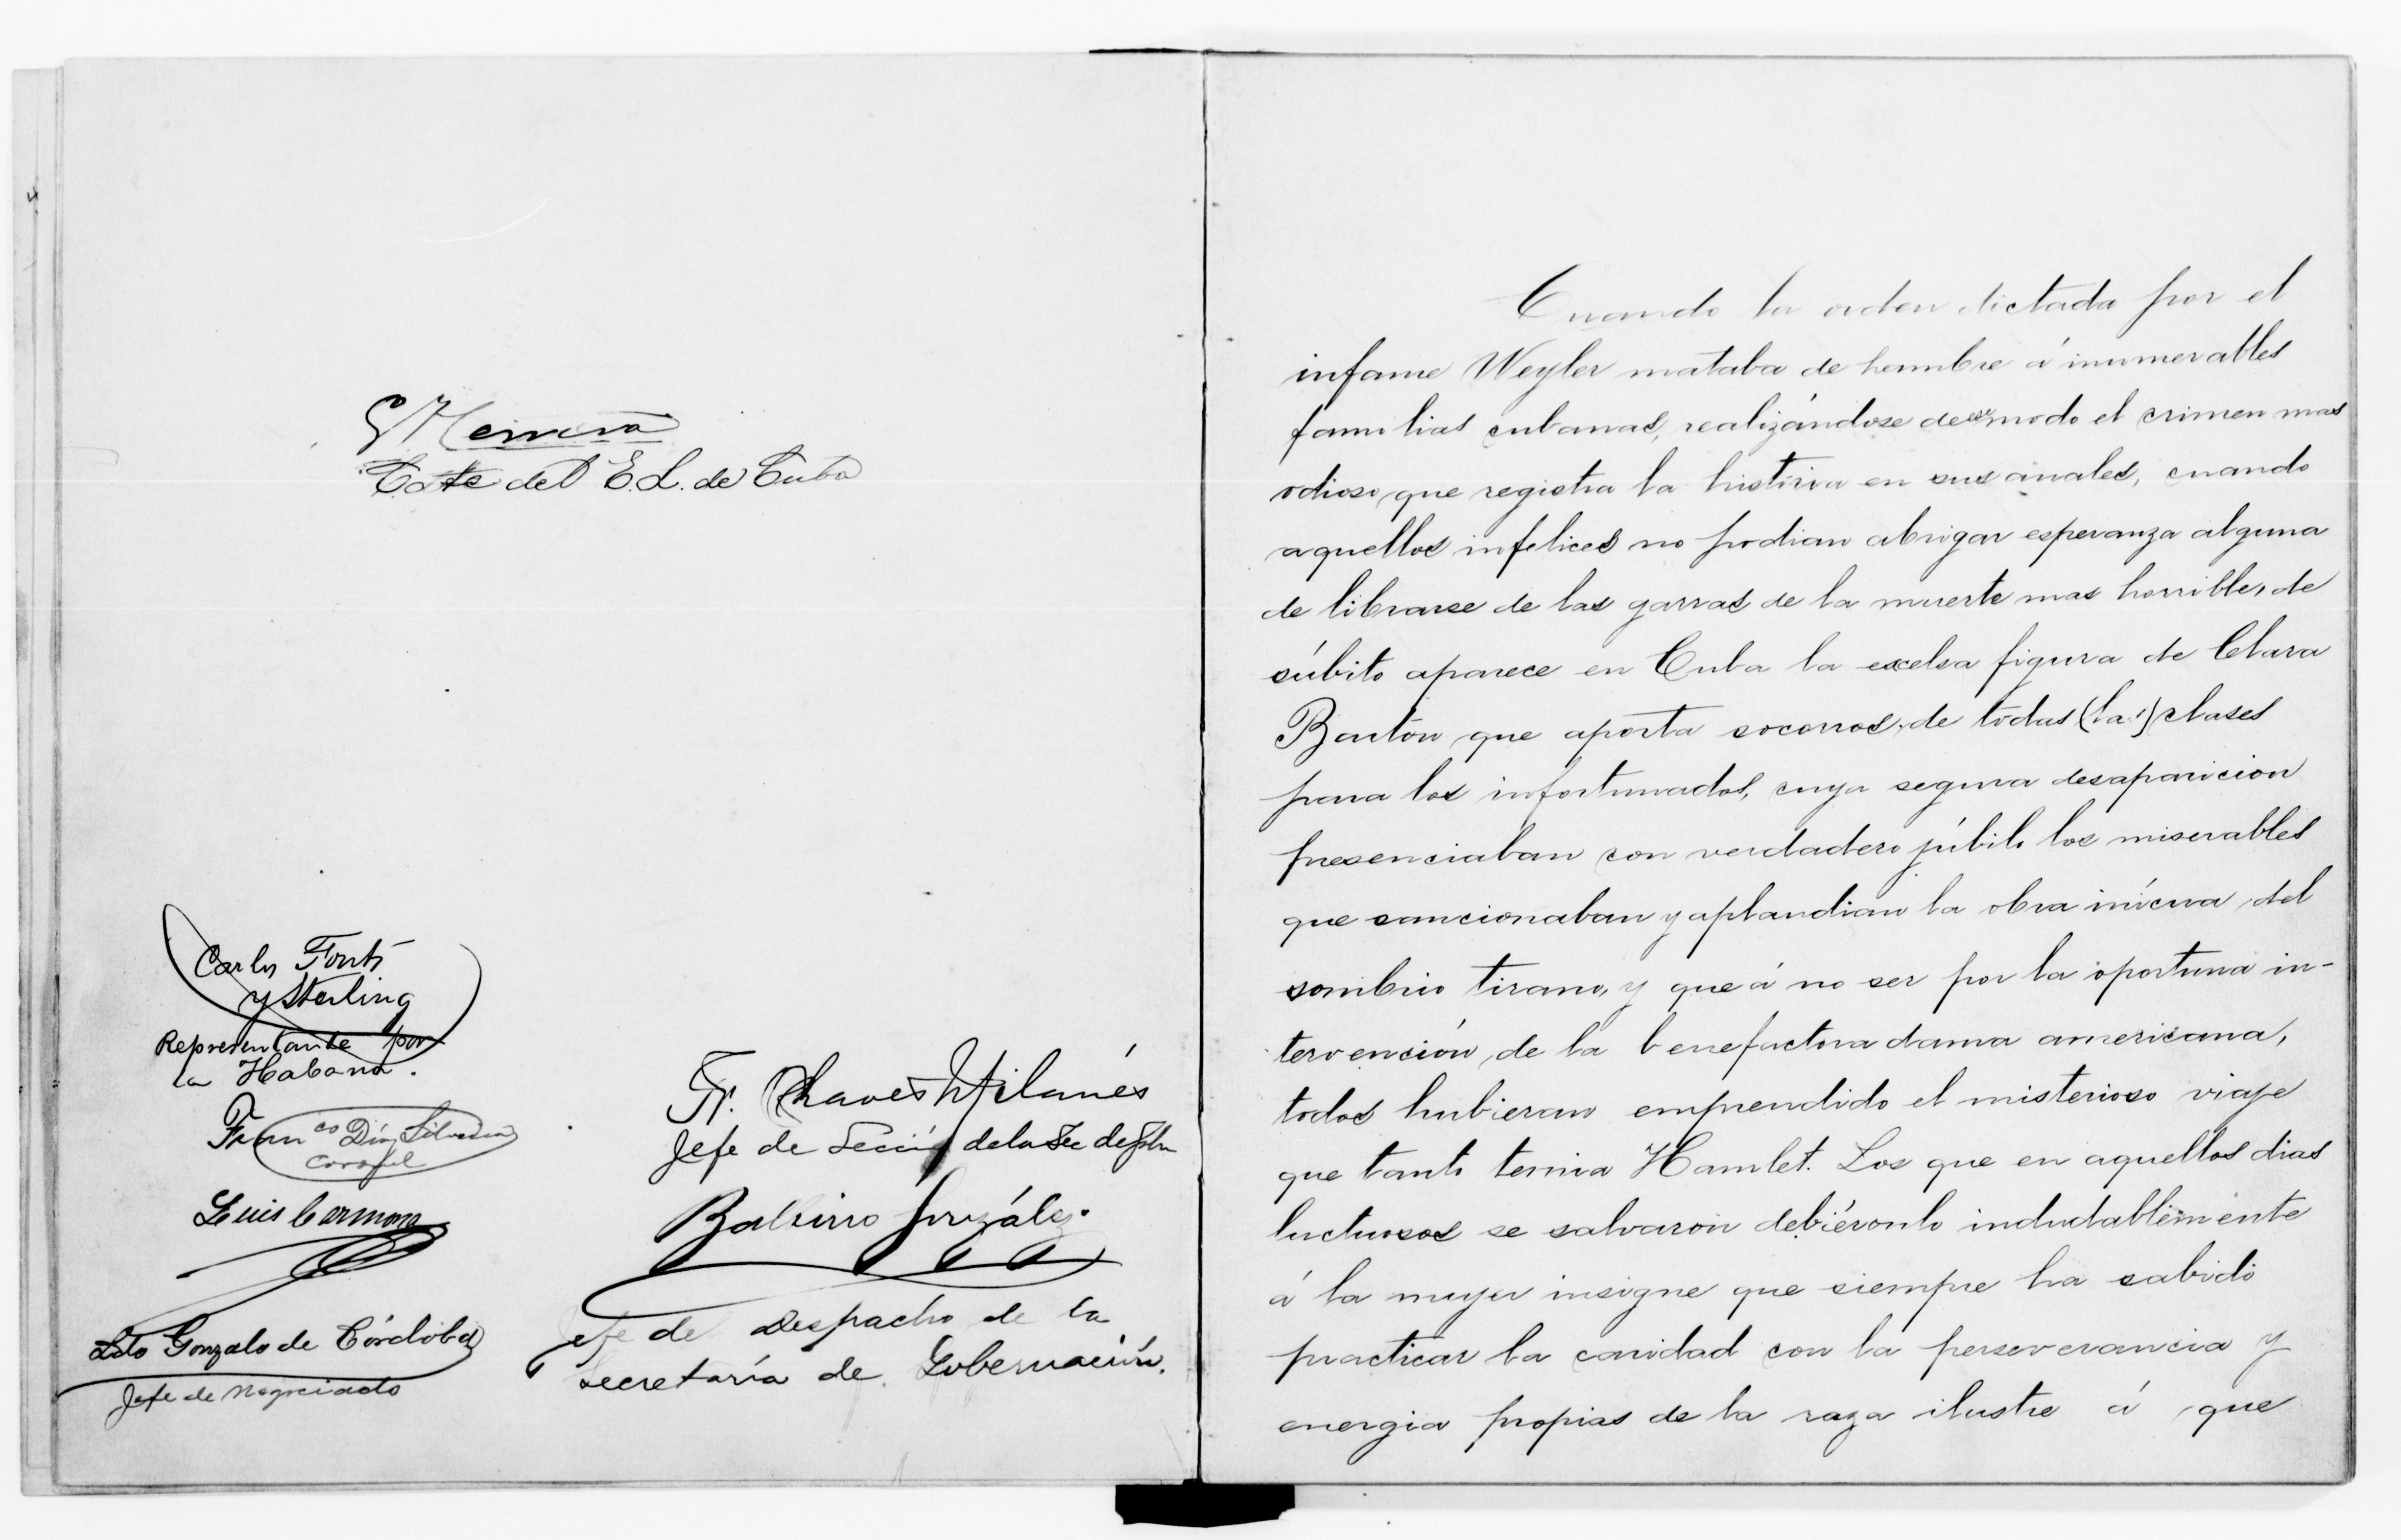 G Herrera
Cote del E. L. de Cuba
Carlos Fonts
y Sterling
Representante por
la Habana.
Franco Diaz Silveira
Coronel
Luis Carmona
Ldo Gonzalo de Córdoba
Jefe de Negociado
Fr. Chaves Milanés
Jefe de Sección de la Sec de
Balbino González.
Jefe de Despacho de la
Secretaría de Gobernación.
Cuando la orden dictada por el
infame Weyler mataba de hambre á inumerables
familias cubanas, realizándose de ese modo el crimen mas
odioso que registra la historia en sus anales, cuando
aquellos infelices no podian abrigar esperanza alguna
de librarse de las garras de la muerte mas horrible, de
súbito aparece en Cuba la excelsa figura de Clara
Barton que aporta socorros de todas (las) clases
para los infortunados, cuya segura desaparicion
presenciaban con verdadero júbilo los miserables
que sancionaban y aplaudian la obra inícua del
sombrio tirano, y que á no ser por la oportuna in-
tervención de la benefactora dama americana,
todos hubieran emprendido el misterioso viaje
que tanto temia Hamlet. Los que en aquellos dias
luctuosos se salvaron debiéronlo indudablemente
á la mujer insigne que siempre ha sabido
practicar la caridad con la perseverancia y
energia propias de la raza ilustre á que